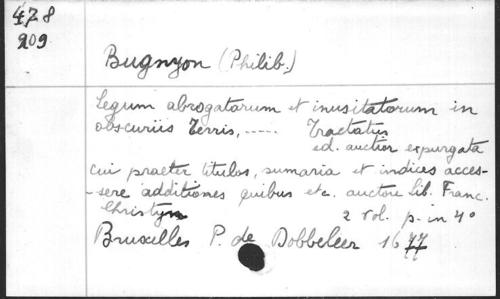 478
209
Bugnyon (Philib.)
Legum abrogatarum et inusitatarum in
obscuriis Terris, ..... Tractatus
ed. auctior expurgata
cui praeter titulos, sumaria et indices acces-
-sere additiones quibus etc. auctore lib. Franc.
Christyn
2 vol. p. in 4°
Bruxelles P. de Dobbeleer 1677